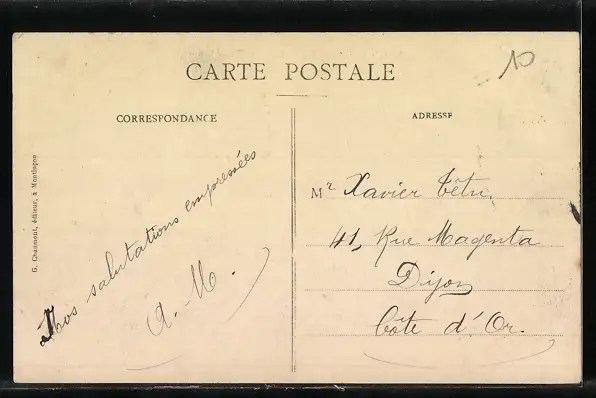 CARTE POSTALE
10
CORRESPONDANCE
ADRESSE
G. Chaumont, éditeur, à Montbupon
Nos salutations empressées
A. M.
Mr Xavier Têtu,
41, Rue Magenta
Dijon
Côte d'Or.